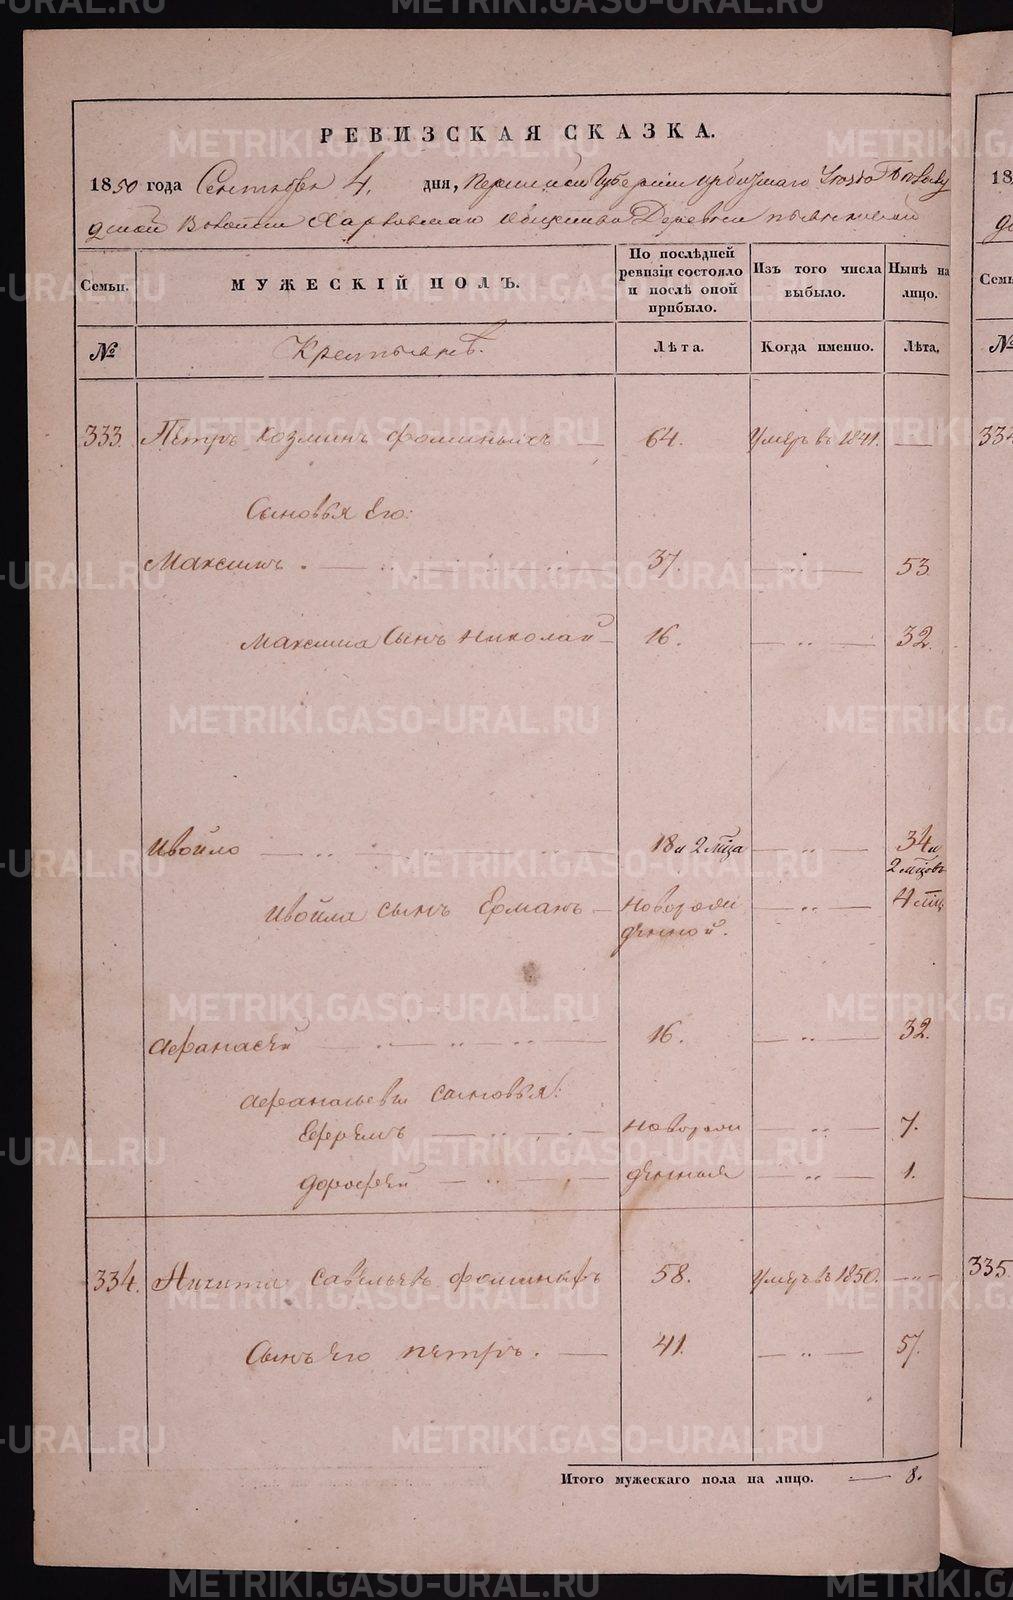 РЕВИЗСКАЯ СКАЗКА.
1850 года Сентября 4. дня, Пермской Губернии Ирбитскаго
Волости Харловскаго общества Деревни
Семьи. МУЖЕСКІЙ ПОЛЪ. По послѣдней ревизіи состояло и послѣ оной прибыло. Изъ того числа выбыло. Нынѣ на лицо.
№ Крестьянъ. Лѣта. Когда именно. Лѣта.
333. Петръ Козминъ Фоминыхъ 64. Умеръ въ 1841.
334
Сыновья Его:
Максимъ 37. 53
Максима Сынъ Николай 16. 32.
Ивойло 18 и 2 мца 34 и 2 мцовъ
Ивойла сынъ Ерманъ Новорожденной. 4 мц
Афанасей 16. 32.
Афанасьевы сыновья:
Ефремъ Новорож 7.
Дорофей денныя 1.
334. Никита Савельевъ Фоминыхъ 58. Умеръ въ 1850.
335.
Сынъ его Петръ. 41. 57.
Итого мужескаго пола на лицо. 8.
METRIKI.GASO-URAL.RU